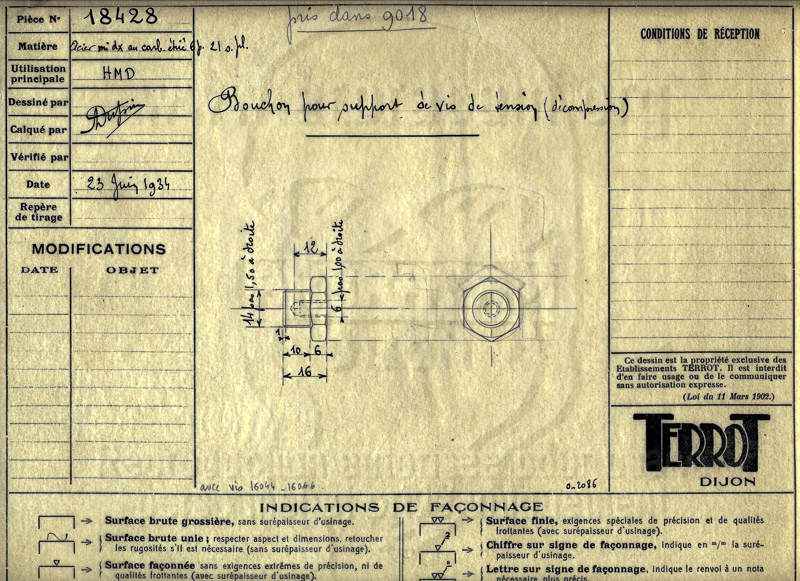 Pièce N° 18428
pris dans 9018
Matière
Acier mi dx au carb. étiré 6p. 21 s. pl.
Utilisation
principale HMD
Dessiné par
Calqué par
Vérifié par
Date 23 Juin 1934
Repère
de tirage
Bouchon pour support de vis de tension (décompression)
CONDITIONS DE RÉCEPTION
MODIFICATIONS
DATE OBJET
12
14 pas 1,50 à droite
6 pas 100 à droite
1
10 6
16
Ce dessin est la propriété exclusive des
Etablissements TERROT. Il est interdit
d'en faire usage ou de le communiquer
sans autorisation expresse.
(Loi du 11 Mars 1902.)
TERROT
DIJON
avec vis 16044_16066
0_2086
INDICATIONS DE FAÇONNAGE
Surface brute grossière, sans surépaisseur d'usinage.
Surface brute unie ; respecter aspect et dimensions, retoucher
les rugosités s'il est nécessaire (sans surépaisseur d'usinage).
Surface façonnée sans exigences extrêmes de précision, ni de
qualités frottantes (avec surépaisseur d'usinage).
Surface finie, exigences spéciales de précision et de qualités
frottantes (avec surépaisseur d'usinage).
Chiffre sur signe de façonnage, indique en m/m la suré-
paisseur d'usinage.
Lettre sur signe de façonnage, indique le renvoi à un nota
nécessaire plus précis.